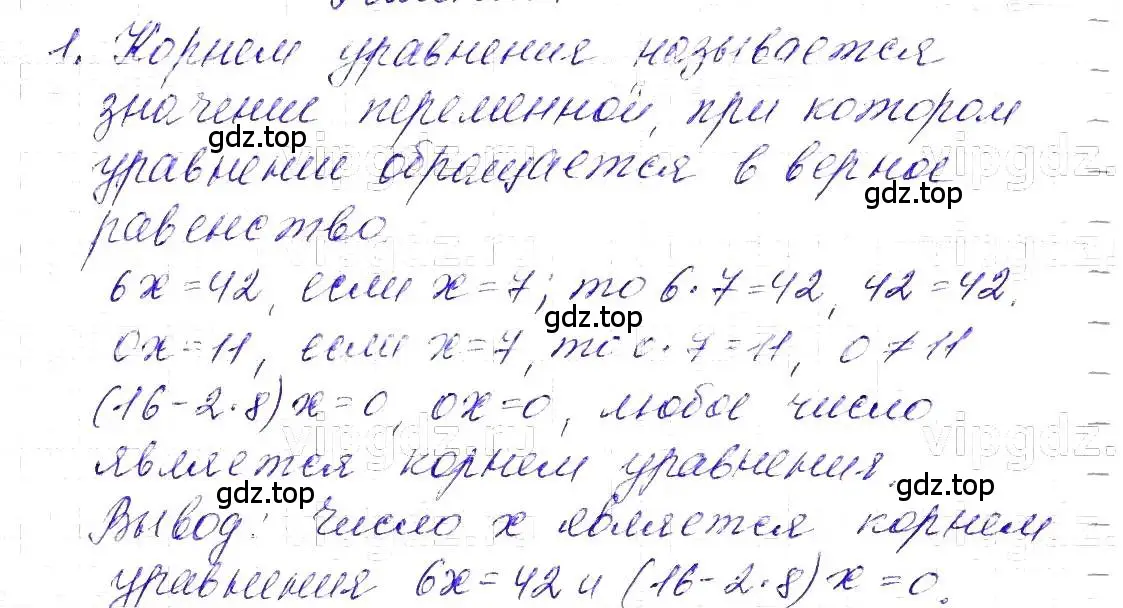 1. Корнем уравнения называется
значение переменной, при котором
gdz.top
уравнение обращается в верное
gdz.top
равенство
6x=42, если x=7, то 6·7=42, 42=42.
gdz.top
0x=11, если x=7, то 0·7=11, 0≠11
(16-2·8)x=0, 0x=0, любое число
vipgdz.ru
vipgdz.
является корнем уравнения.
gdz.top
gdz.top
Вывод: Число x является корнем
уравнения 6x=42 и (16-2·8)x=0.
gdz.top